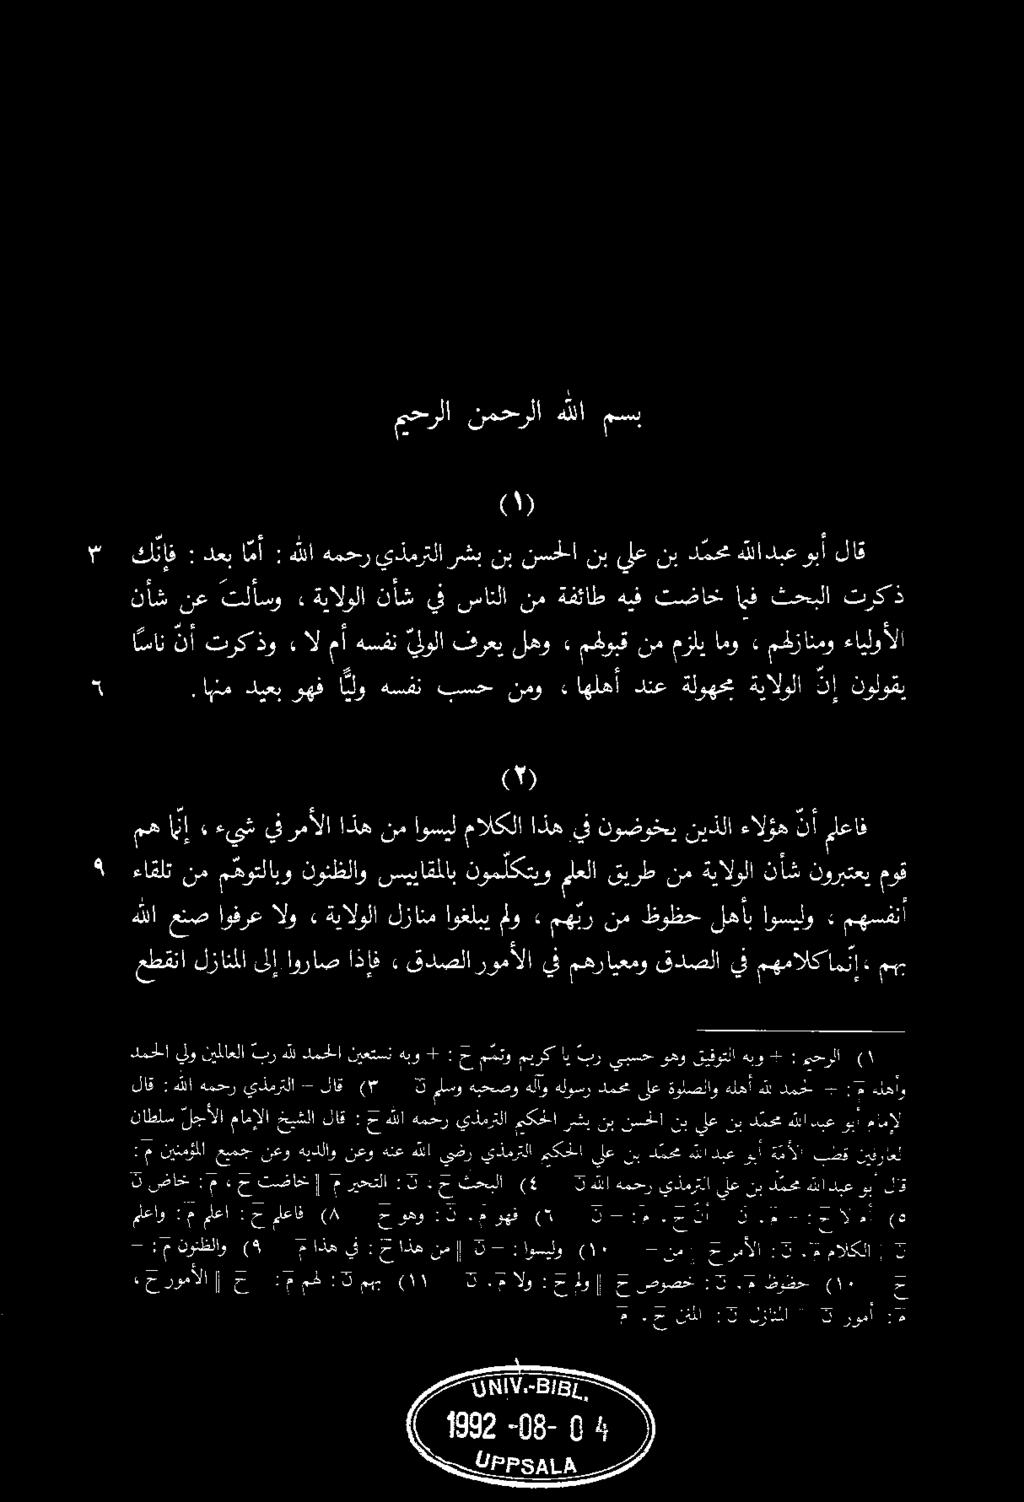 بسم الله الرحمن الرحيم
(١)
قال أبو عبدالله محمّد بن علي بن الحسن بن بشر الترمذي رحمه الله : أمّا بعد : فإنّك ٣
ذكرت البحث فيما خاضت فيه طائفة من الناس في شأن الولاية ، وسألتَ عن شأن
الأولياء ومنازلهم ، وما يلزم من قبولهم ، وهل يعرف الوليّ نفسه أم لا ، وذكرت أنّ ناسًا
يقولون إنّ الولاية مجهولة عند أهلها ، ومن حسب نفسه وليًّا فهو بعيد منها . ٦
(٢)
فاعلم أنّ هؤلاء الذين يخوضون في هذا الكلام ليسوا من هذا الأمر في شيء ، إنّما هم
قوم يعتبرون شأن الولاية من طريق العلم ويتكلّمون بالمقاييس والظنون وبالتوهّم من تلقاء ٩
أنفسهم ، وليسوا بأهل حظوظ من ربّهم ، ولم يبلغوا منازل الولاية ، ولا عرفوا صنع الله
بهم ، إنّما كلامهم في الصدق ومعيارهم في الأمور الصدق ، فإذا صاروا إلى المنازل انقطع
١) الرحيم : + وبه التوفيق وهو حسبي ربّ يا كريم وتمّم ح : + وبه نستعين الحمد لله ربّ العالمين ولي الحمد
وأهله م : + الحمد لله أهله والصلوة على محمد رسوله وآله وصحبه وسلم ن ٣) قال – الترمذي رحمه الله : قال
الإمام أبو عبدالله محمّد بن علي بن الحسن بن بشر الحكيم الترمذي رحمه الله ح : قال الشيخ الإمام الأجلّ سلطان
العارفين قطب الأمّة أبو عبدالله محمّد بن علي الحكيم الترمذي رضي الله عنه وعن والديه وعن جميع المؤمنين م :
قال أبو عبدالله محمّد بن علي الترمذي رحمه الله ن ٤) البحث ح ، ن : التحير م ‖ خاضت ح ، م : خاض ن
٥) أم لا ح : – م ، ن أنّ ح ، م : – ن ٦) فهو م ، ن : وهو ح ٨) فاعلم ح : اعلم م : واعلم
ن الكلام م ، ن : الأمر ح من – ١٠) وليسوا : – ن ‖ من هذا ح : في هذا م ٩) والظنون م : –
ح ١٠) حظوظ م ، ن : خصوص ح ‖ ولم ح : ولا م ، ن ١١) بهم ن : لهم م : ح ‖ الأمور ح ،
م : أمور ن المنازل ن : المنن ح ، م
١
UNIV.-BIBL.
1992 -08- 04
UPPSALA